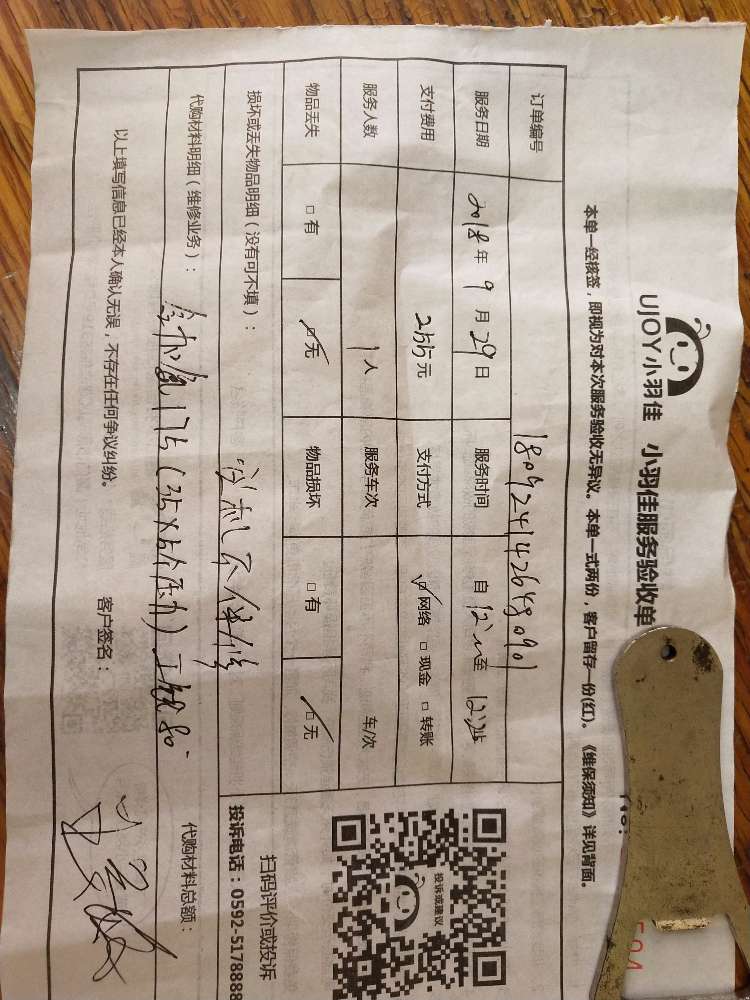 UJOY小羽佳 小羽佳服务验收单
No:
本单一经核签，即视为对本次服务验收无异议。本单一式两份，客户留存一份(红)。《维保须知》详见背面。
订单编号
服务日期 2018 年 9 月 29 日 服务时间 自 至
支付费用 255元 支付方式 ☑网络 □现金 □转账
服务人数 1人 服务车次 车/次
物品丢失 □有 ☑无 物品损坏 □有 ☑无
损坏或丢失物品明细（没有可不填）：
代购材料明细（维修业务）： 175 (35×5个压力)
代购材料总额：
以上填写信息已经本人确认无误，不存在任何争议纠纷。
客户签名：
投诉或建议
扫码评价或投诉
投诉电话：0592-5178888